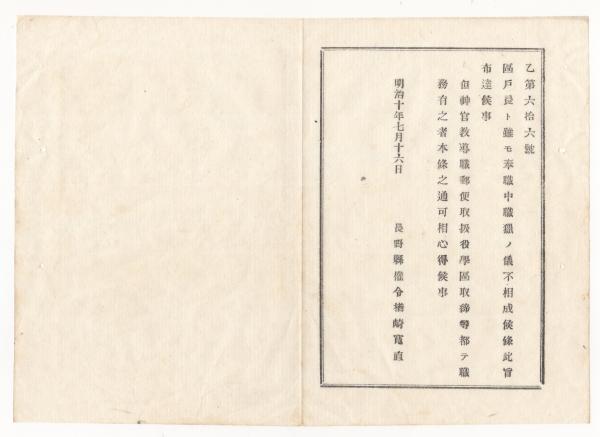 乙第六拾六號
區戸長ト雖モ奉職中職獵ノ儀不相成候條此旨
布達候事
但神官教導職郵便取扱役學區取締等都テ職
務有之者本條之通可相心得候事
明治十年七月十六日
長野縣權令楢崎寛直